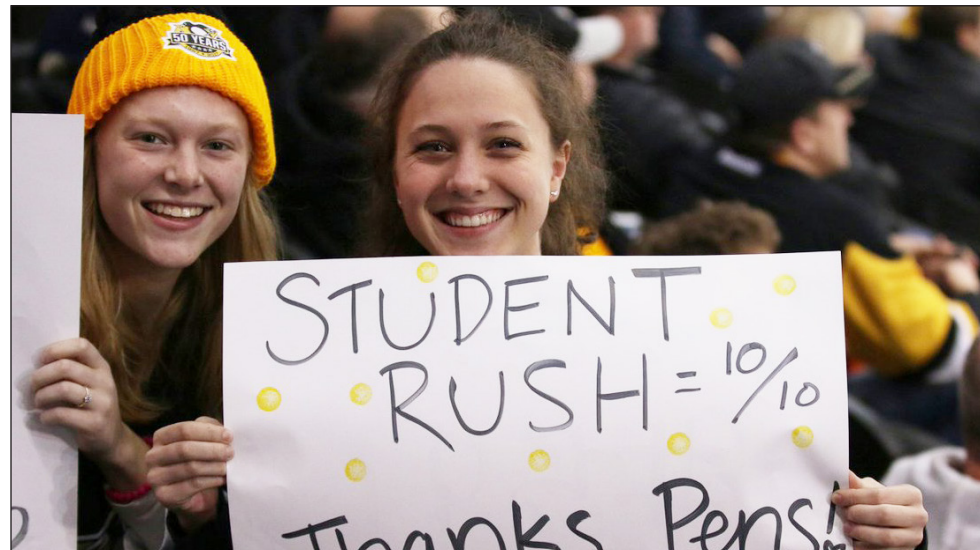 50 YEARS
STUDENT
RUSH = 10/10
Thanks Pens!